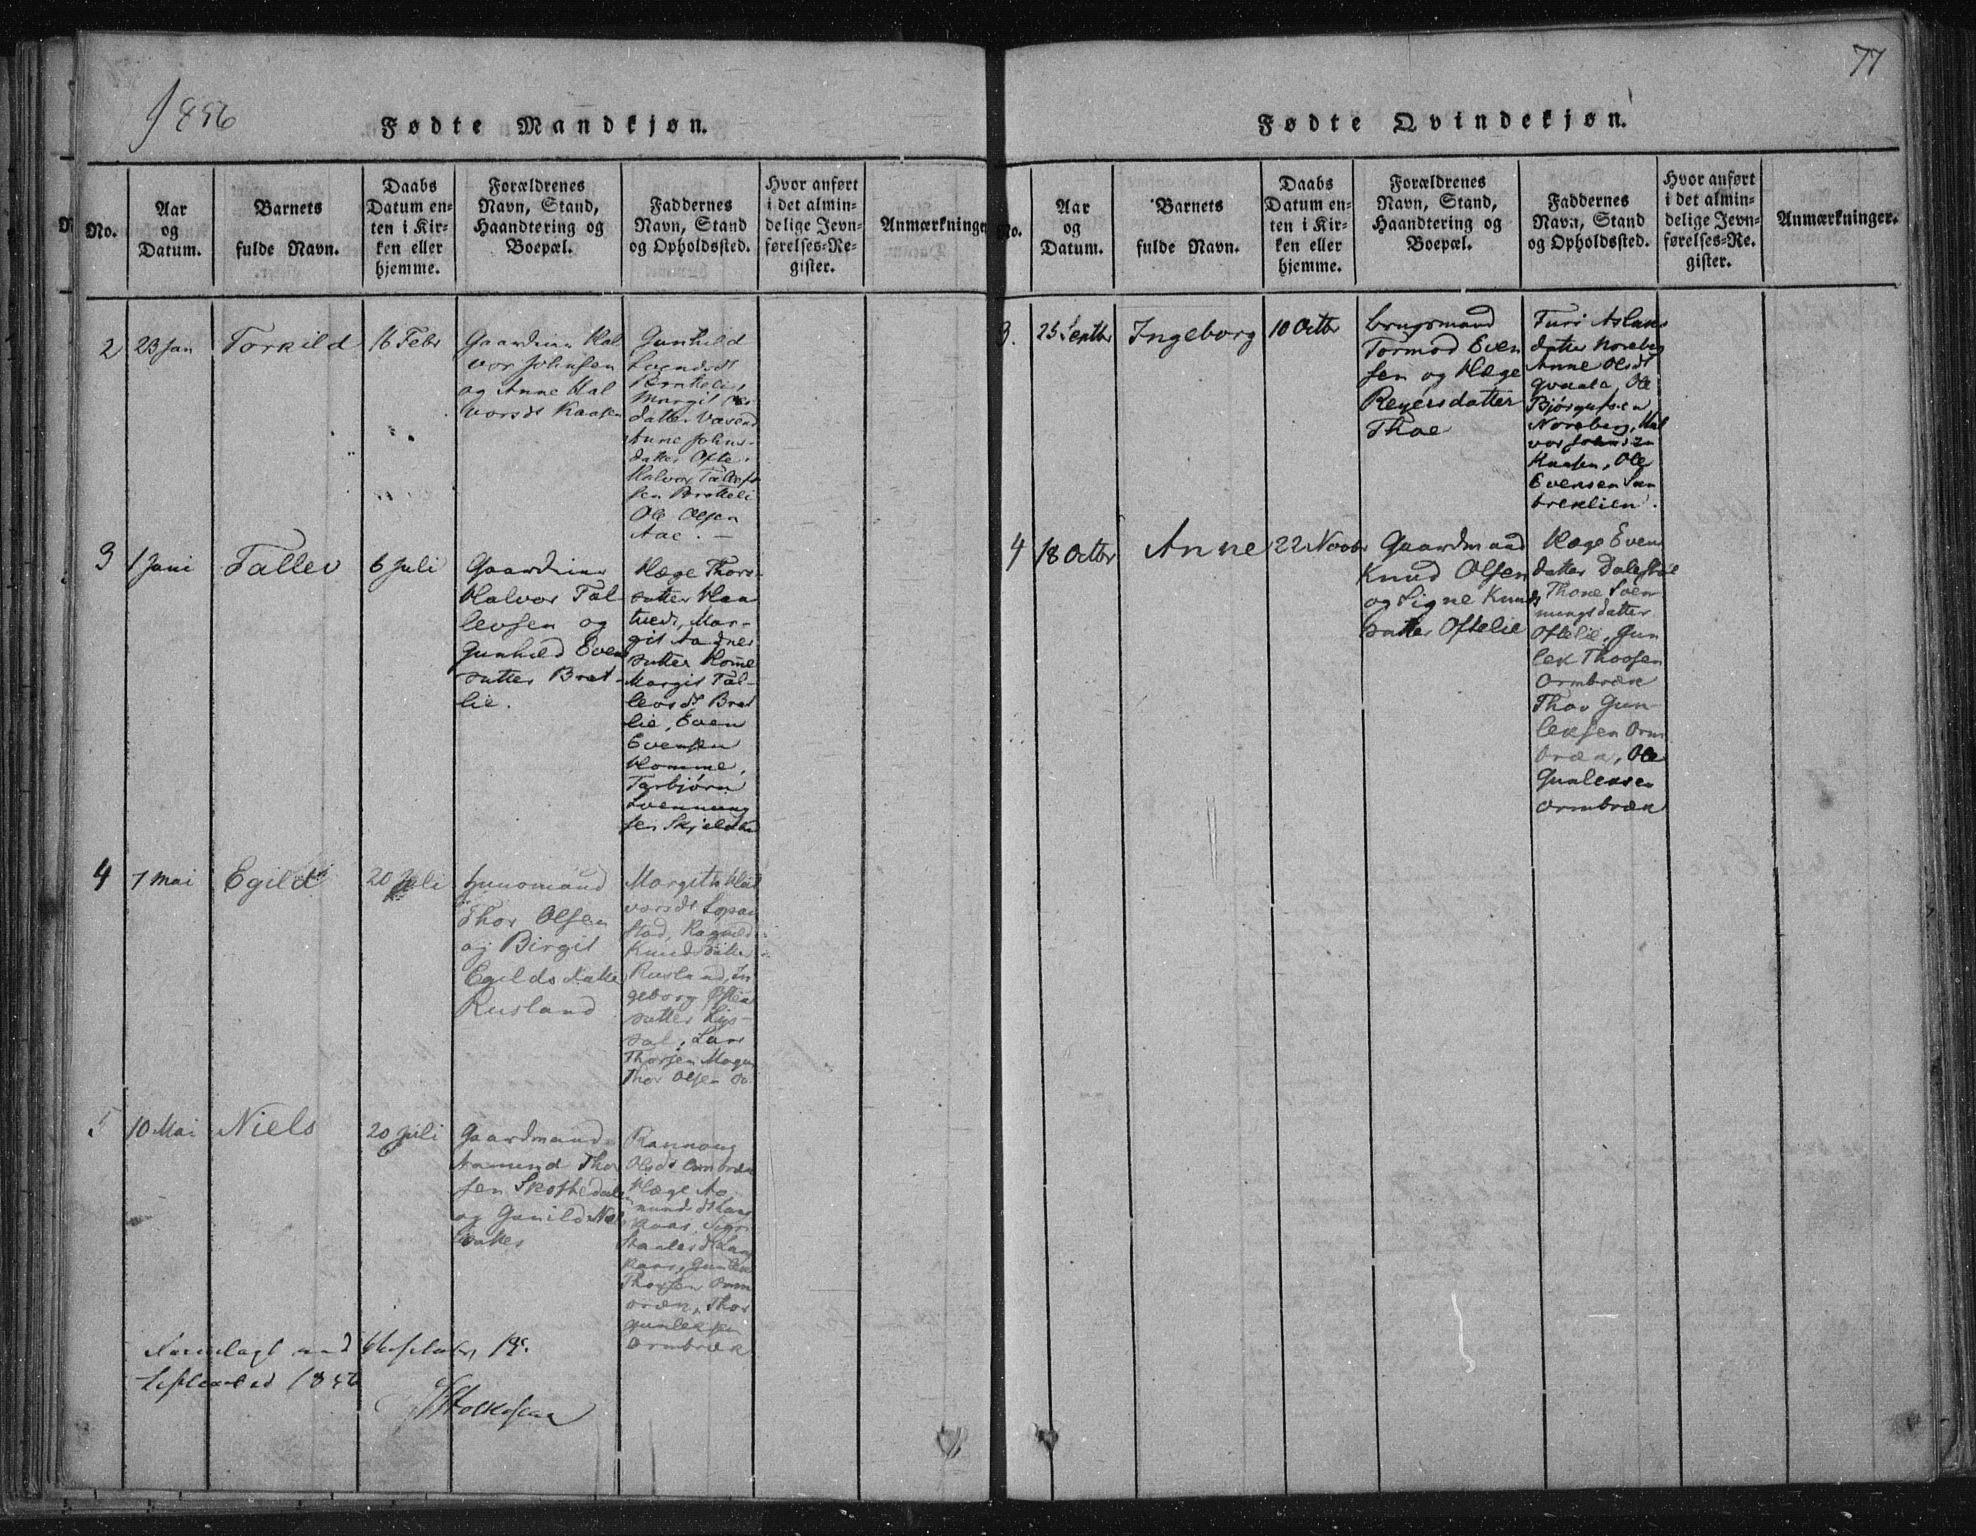 1856
Fødte Mandkjøn.
No.
Aar
og
Datum.
Barnets
fulde Navn.
Daabs
Datum en-
ten i Kir-
ken eller
hjemme.
Forældrenes
Navn, Stand,
Haandtering og
Boepæl.
Faddernes
Navn, Stand
og Opholdssted.
Hvor anført
i det almin-
delige Jevn-
førelses-Re-
gister.
Anmærkninger
2
23 Jan
Torkild
16 Febr
Gaardm Hal
vor Johnsen
og Anne Hal
vorsdt Kaasen
Gunhild
Svendsdt
Margit
datter
Anne Johns-
datter Ofte.
Halvor Tallefs
sen
Ole Olsen
Aae. —
3
1 Juni
Tallev
6 Juli
Gaardm
Halvor Tal-
levsen og
Gunhild Evens
datter Brat-
lie.
Hæge Thors-
datter Haa
tvedt, Mar-
git Aadnes
datter Home
Margit Tal-
levsdt Brat
lie, Even
Evensen
Homme,
Tarbjørn
Svennung
sen
4
7 Mai
Egild
20 Juli
Huusmand
Thor Olsen
og Birgit
Egildsdatter
Rusland
Margith Hal
vorsdt
stad,
Knudsdatter
Rusland, In
geborg
datter
dal, Lars
Thorsen
Thor Olsen
5
10 Mai
Niels
20 Juli
Gaardmand
Aamund Thor
sen Skoftedalen
og Gunild Niels
datter
Rannoug
Olsdt Ormbræk
Hæge Aa
mundsdt
Staalesdt
Gunlek
Thorsen Orm
bræk, Thor
Gunleksen
Ormbræk
September 1856
77
Fødte Qvindekjøn.
No.
Aar
og
Datum.
Barnets
fulde Navn.
Daabs
Datum en-
ten i Kir-
ken eller
hjemme.
Forældrenes
Navn, Stand,
Haandtering og
Boepæl.
Faddernes
Navn, Stand
og Opholdssted.
Hvor anført
i det almin-
delige Jevn-
førelses-Re-
gister.
Anmærkninger.
3.
25 Septbr
Ingeborg
10 Octbr
Brugsmand
Tormod Even
sen og Hæge
Reyersdatter
Thoe
Turi Aslaks
datter Noreberg
Anne Olsdt
Qvaale, Ole
Bjørgufsen
Noreberg, Hal
vor Johnsen
Kaasen, Ole
Evensen
breklien.
4
18 Octbr
Anne
22 Novbr
Gaardmand
Knud Olsen
og Signe Knuds
datter Oftelie
Hæge Evens
datter
Thone Sven
nungsdatter
Oftelie, Gun
lek Thovsen
Ormbræk
Thov Gun-
leksen Orm
bræk, Ole
Gunleksen
Ormbræk